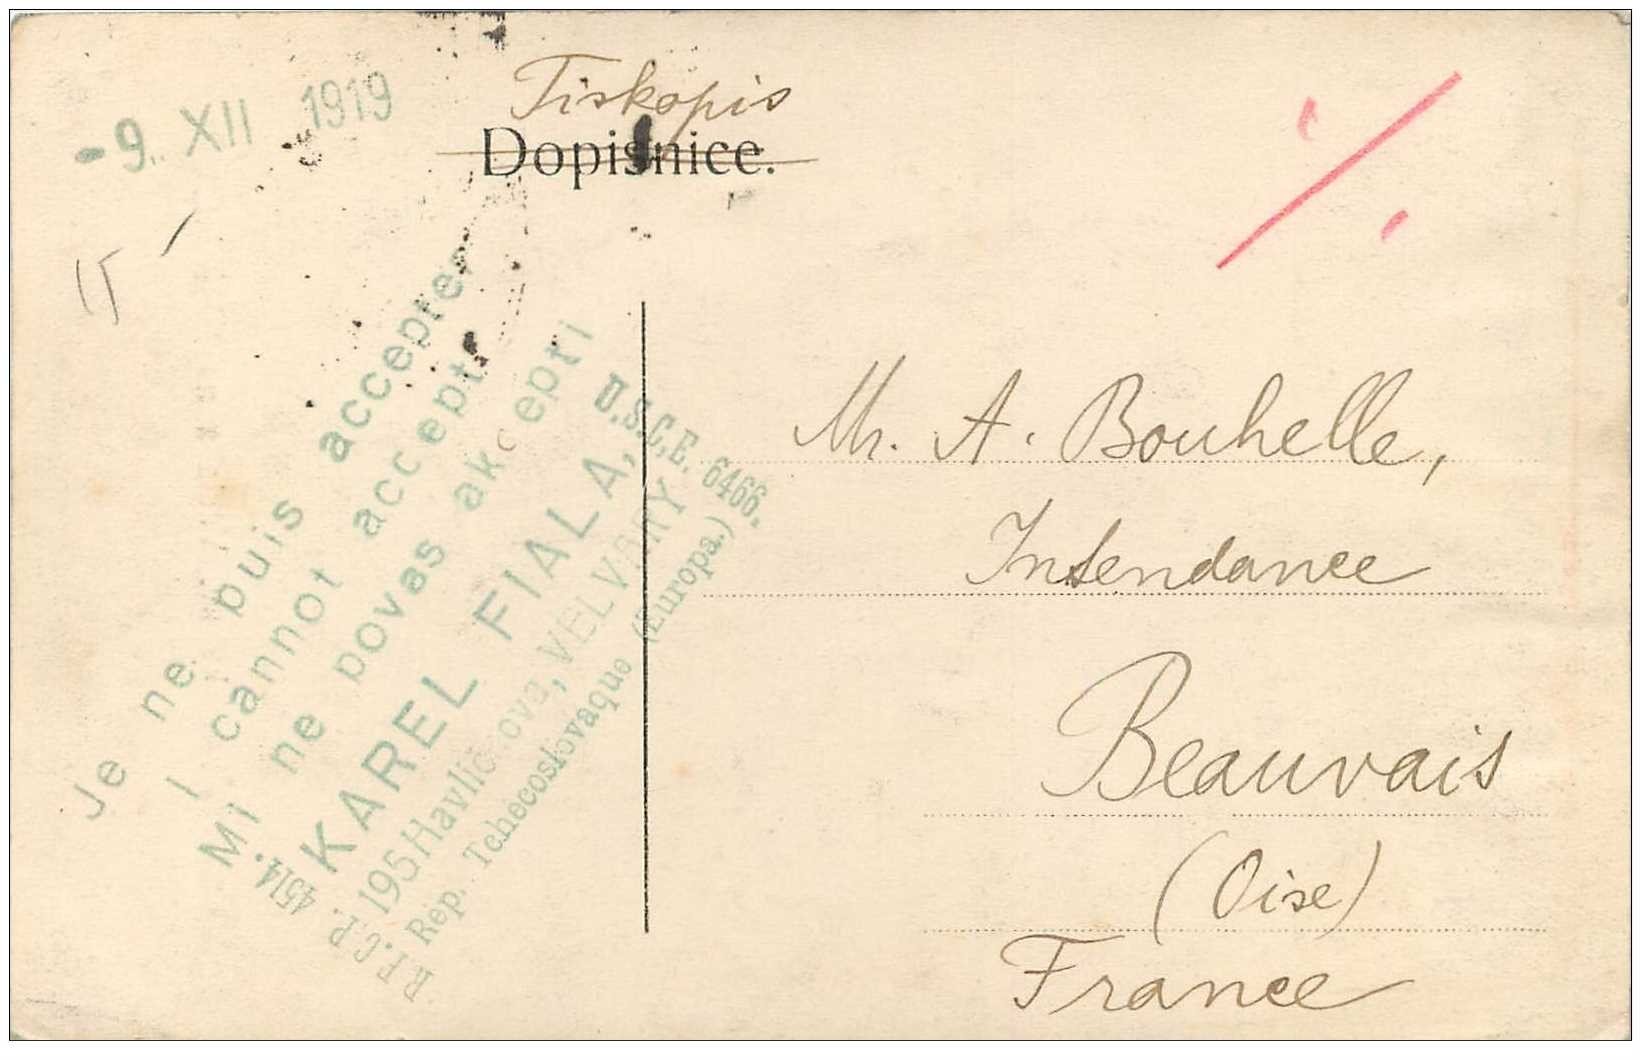 - 9. XII 1919
Tiskopis
Dopisnice.
Je ne puis accepter
I cannot accept
Mi ne povas akcepti
KAREL FIALA,
195 Havlíčkova, VELVARY
Rep. Tchecoslovaque (Europa.)
U.S.C.E. 6466.
4514.
Mr. A. Bouhelle,
Intendance
Beauvais
(Oise)
France